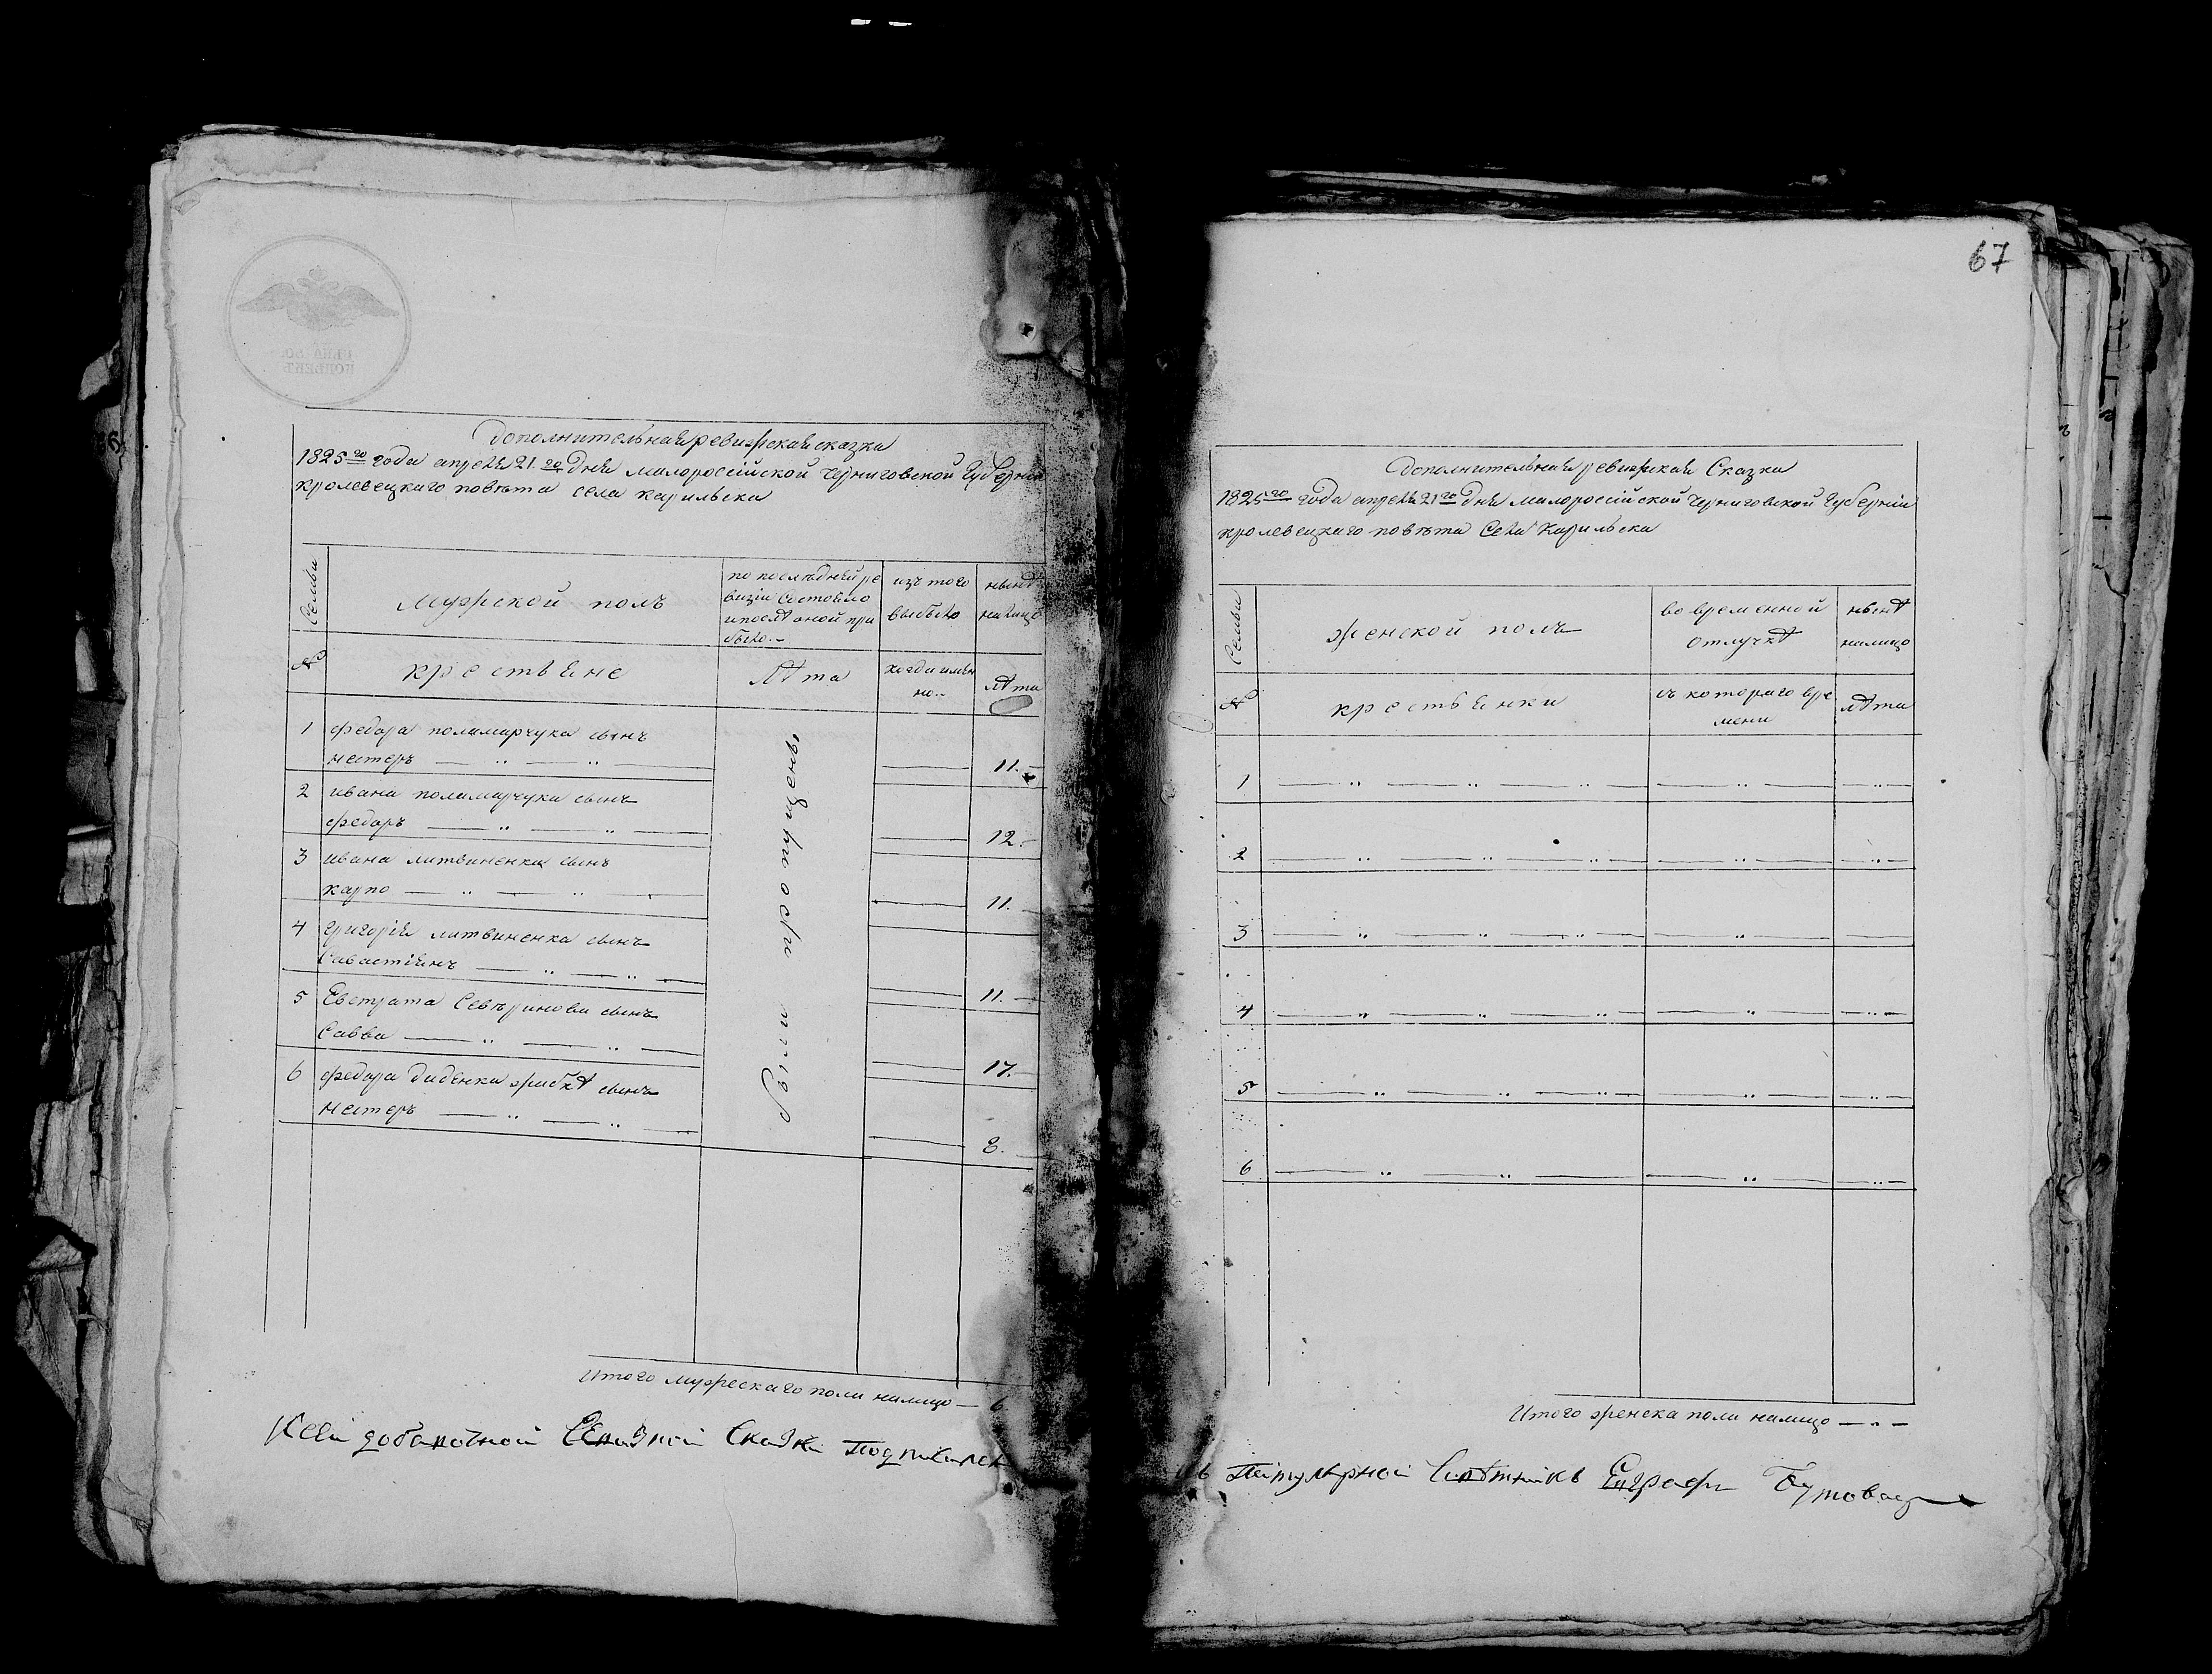 ЦѢНА 50.
КОПѢЕКЪ
Дополнительная ревижская сказка
1825го года апреля 21.го дня малороссійской Черниговской Губерніи
кролевецкаго повѣта села карильска
Семьи
Мужской полъ
по послѣдней ре
визіи состояло
и послѣ оной при
было.-
изъ того
выбыло
нынѣ
налицо
№
крестьяне
лѣта
когда имян
но..
лѣта
1 федора поламарчука сынъ
нестеръ 11.
2 ивана поламарчука сынъ
федоръ 12.
3 ивана литвиненка сынъ
карпо 11.
4 григорія литвиненка сынъ
Савастіянъ 11.
5 Евстрата Севѣринова сынъ
Савва 17.
6 федора диденка жабкѣ сынъ
нестеръ 8.
были пропущены
Итого мужескаго пола налицо — 6
К сей добавочной Сказки Подписалса
67
Дополнительная ревижская Сказка
1825го года апреля 21го дня малороссійской Черниговской Губерніи
кролевецкаго повѣта Села Карильска
Семьи
женской полъ
во временной
отлучкѣ
нынѣ
налицо
№
крестьянки
съ котораго вре
мени
лѣта
1
2
3
4
5
6
Итого женска пола налицо — " —
Титулярной Совѣтникъ Евграфъ Бутова